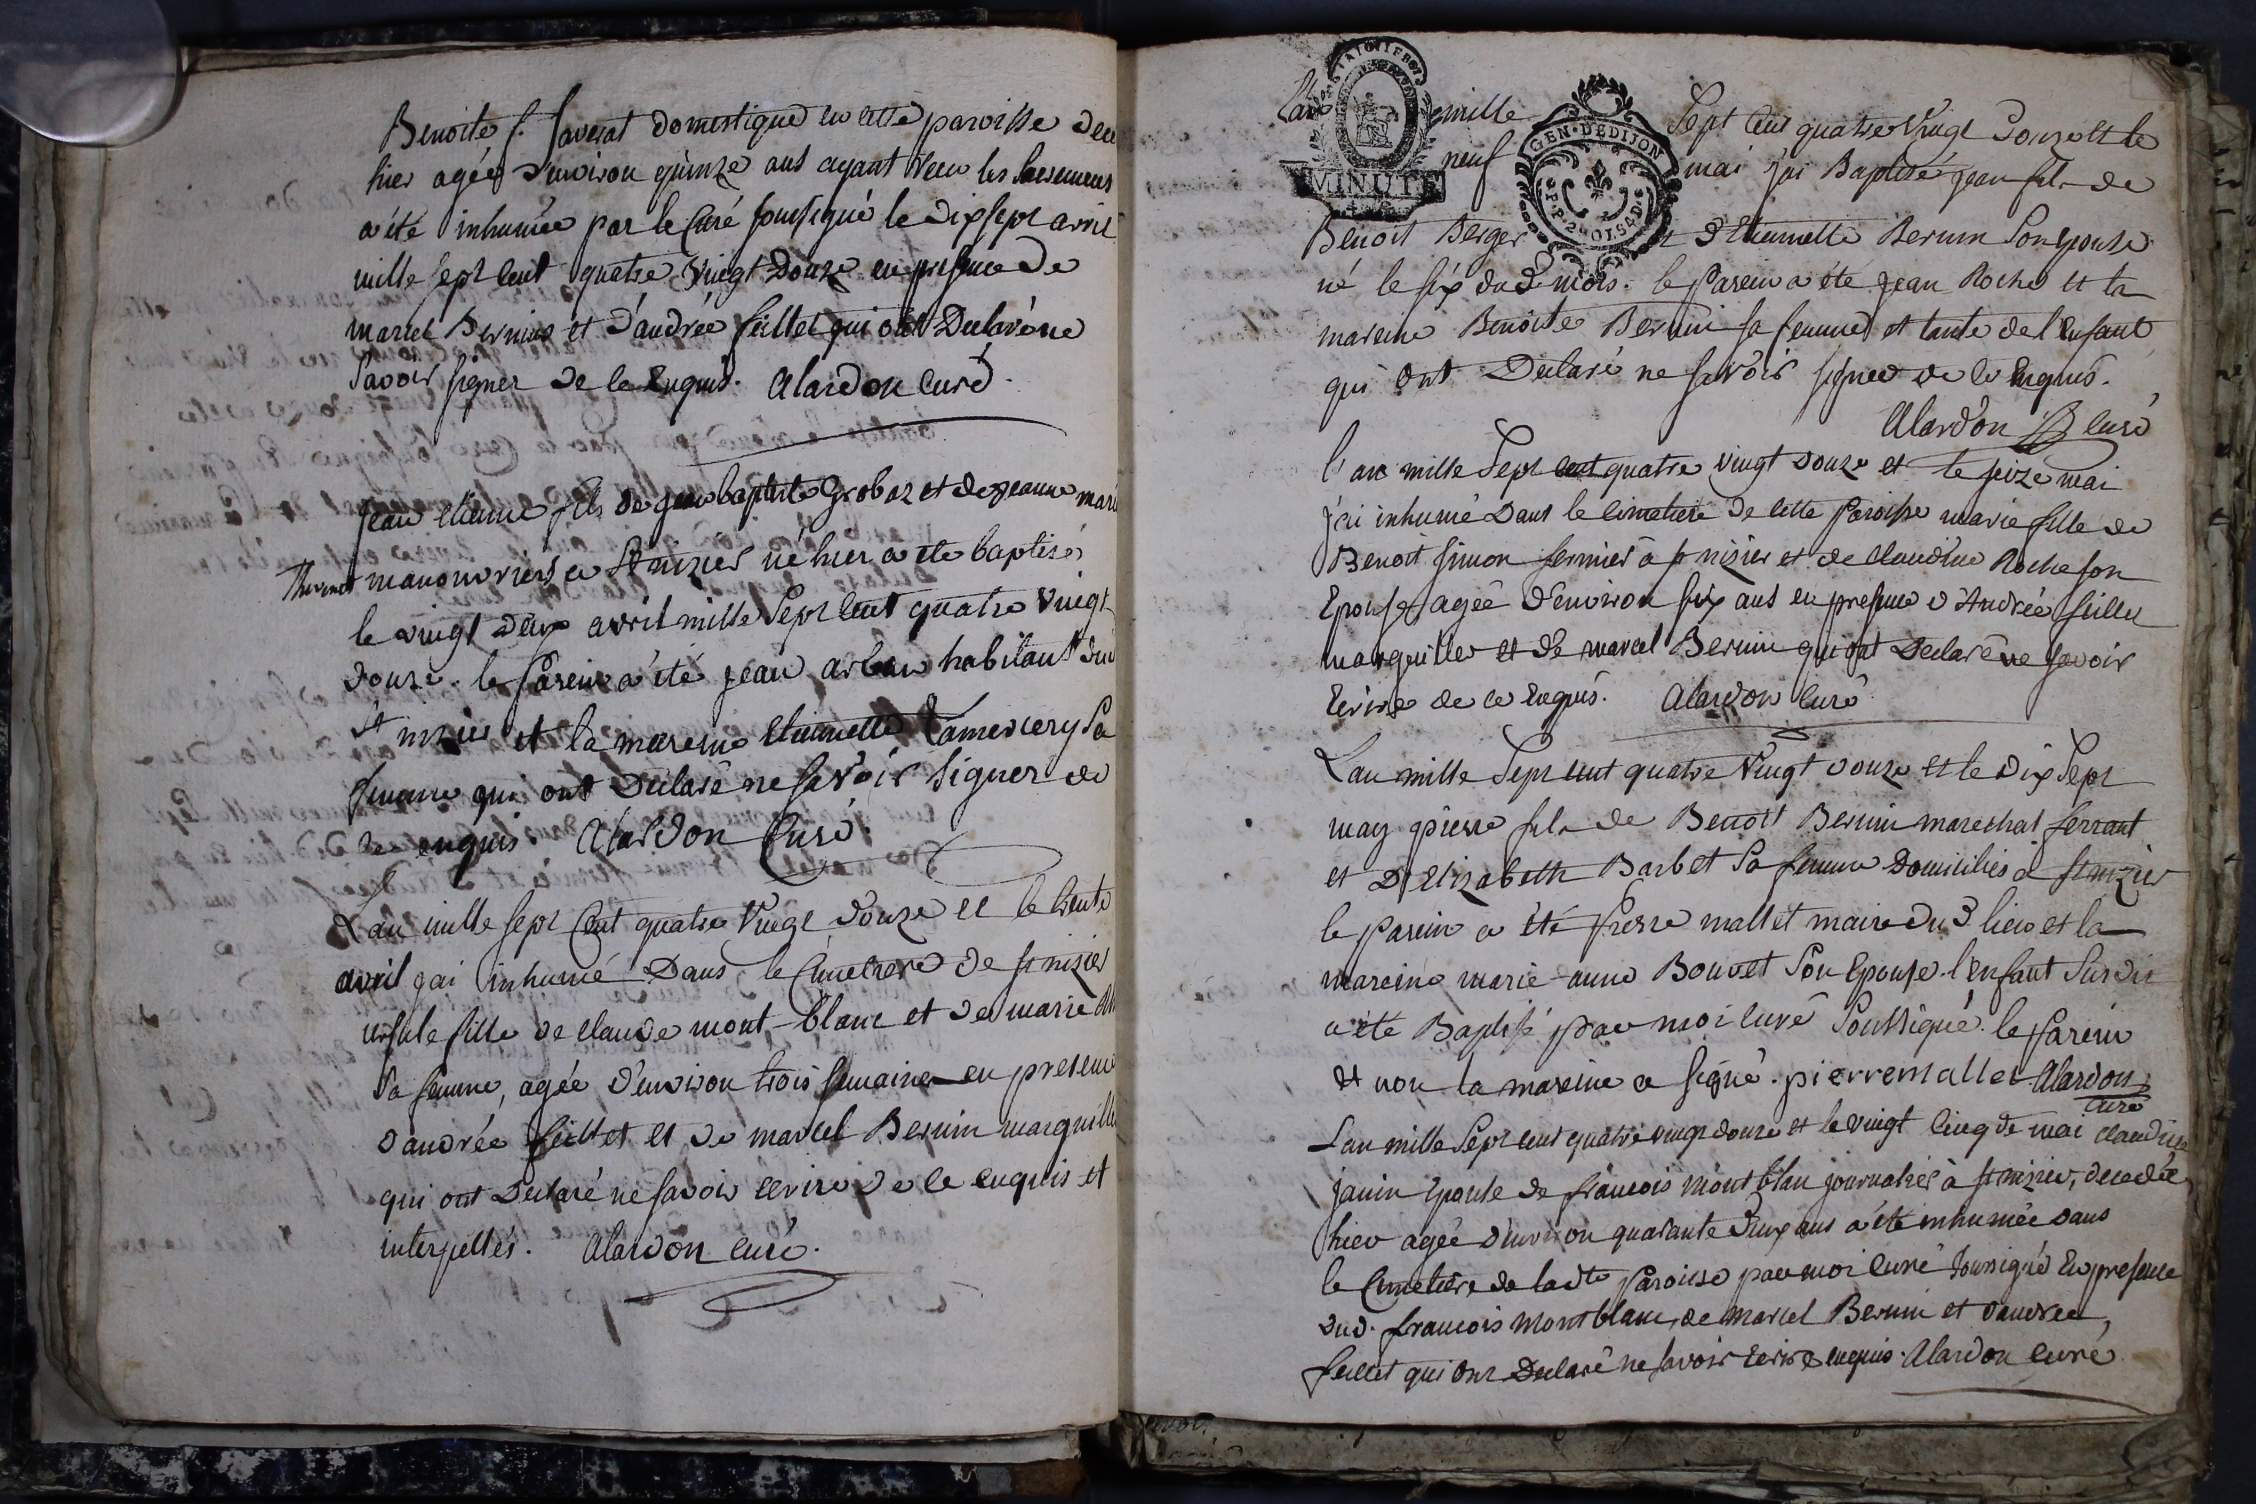 Benoite f. Saverat domestique en cette paroisse
hier agée d'environ quinze ans ayant recu les Sacremens
a été inhumée par le Curé soussigné le dix sept avril
mille sept cent quatre vingt Douze en presence de
marcel Bernin et d'andrée feillet qui ont Déclaré ne
savoir signer de ce Enquis. Alardon Curé.
Jean etienne fils de jean baptiste Grobaz et de jeanne marie
Thevenet manouvriers a St nizier né hier a ete baptisé
le vingt deux avril mille Sept Cent quatre vingt
douze. le Parein a été jean arban habitant
St nizier et la mareine Etiennette Lamercery Sa
femme qui ont Declaré ne savoir signer de
ce enquis. Alardon Curé.
L'an mille sept Cent quatre vingt Douze et le trente
avril jai inhumé Dans le Cimetiere de st nizier
ursule fille de claude mont-blanc et de marie
sa femme, agée d'environ trois semaines en presence
d'andrée feillet et de marcel Bernin marguillier
qui ont Declaré ne savoir ecrire de ce enquis et
interpellés. Alardon curé.
L'an mille Sept Cent quatre Vingt Douze et le
neuf mai j'ai Baptisé jean fils de
MINUTE
GEN·DEDIJON
Benoit Berger et d'Etiennette Bernin Son epouse
né le six du d. mois. le Parein a été jean Roche et la
mareine Benoite Bernin sa femme et tante de l'enfant
qui ont Declaré ne savoir signer de ce Enquis.
Alardon Curé
l'an mille Sept cent quatre vingt douze et le seize mai
j'ai inhumé Dans le Cimetiere de cette paroisse marie fille de
Benoit simon fermier à st nizier et de claudine Roche son
Epouse agée d'environ six ans en presence d'Andrée feillet
marguillier et de marcel Bernin qui ont Declaré ne savoir
Ecrire de ce Enquis. Alardon Curé
L'an mille Sept cent quatre Vingt douze et le Dix Sept
may pierre fils de Benoit Bernin marechal ferrant
et D'Elizabeth Barbet sa femme Domiciliés à st nizier
le parein a été Pierre mallet maire du d. lieu et la
mareine marie-anne Bouvet Son Epouse l'enfant Susdit
a été Baptisé par moi curé Soussigné. le Parein
et non la mareine a signé. pierre mallet Alardon
Curé
L'an mille Sept cent quatre vingt douze et le vingt Cinq de mai claudine
janin epouse de françois mont blan journalier à st nizier, decedée
hier agée d'environ quarante deux ans a été inhumée dans
le Cimetiere de ladte Paroisse par moi Curé soussigné En presence
dud. françois mont blanc, de marcel Bernin et d'andrée
feillet qui ont Declaré ne savoir Ecrire enquis. Alardon Curé